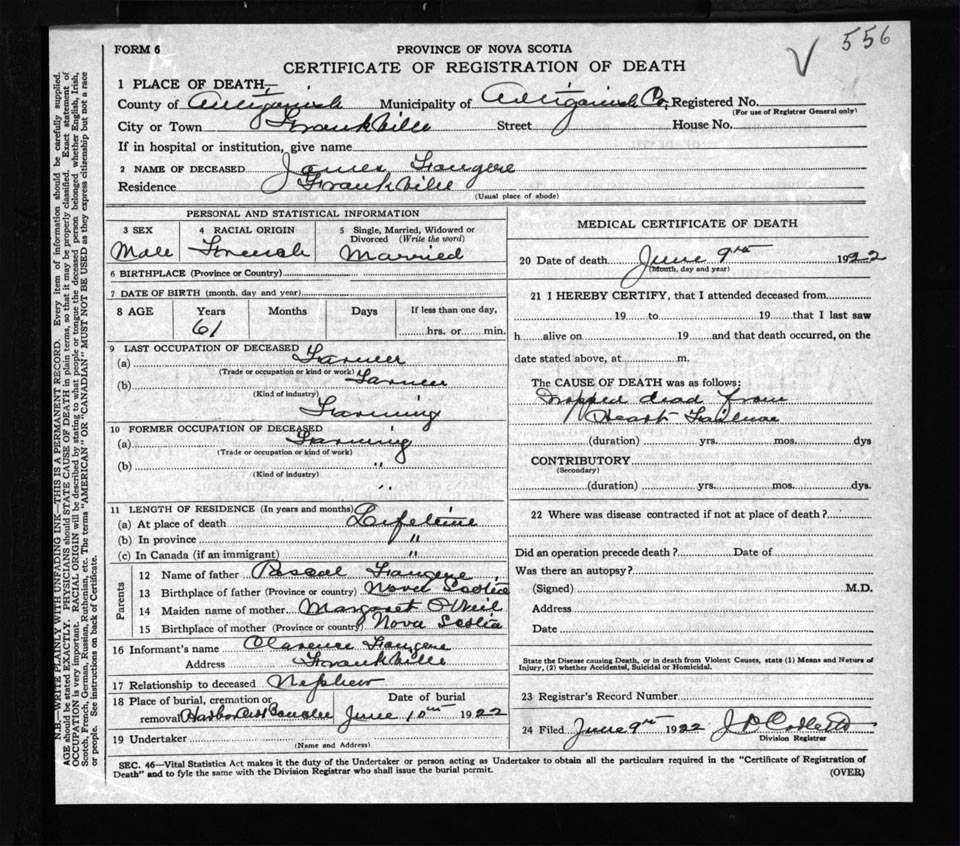 556
FORM 6
PROVINCE OF NOVA SCOTIA
CERTIFICATE OF REGISTRATION OF DEATH
1 PLACE OF DEATH—
County of Antigonish Municipality of Antigonish Co, Registered No.
(For use of Registrar General only)
City or Town Frankville Street House No.
If in hospital or institution, give name
2 NAME OF DECEASED James
Residence Frankville
(Usual place of abode)
PERSONAL AND STATISTICAL INFORMATION
3 SEX 4 RACIAL ORIGIN 5 Single, Married, Widowed or Divorced (Write the word)
Male French Married
6 BIRTHPLACE (Province or Country)
7 DATE OF BIRTH (month, day and year)
8 AGE Years Months Days If less than one day,
61 hrs. or min.
9 LAST OCCUPATION OF DECEASED
(a) Farmer
(Trade or occupation or kind or work)
(b) Farmer
(Kind of industry)
Farming
10 FORMER OCCUPATION OF DECEASED
(a) Farming
(Trade or occupation or kind of work)
(b) "
(Kind of industry)
"
11 LENGTH OF RESIDENCE (In years and months)
(a) At place of death Lifetime
(b) In province "
(c) In Canada (if an immigrant) "
Parents
12 Name of father
13 Birthplace of father (Province or country) Nova Scotia
14 Maiden name of mother Margaret O'Neil
15 Birthplace of mother (Province or country) Nova Scotia
16 Informant's name Clarence
Address Frankville
17 Relationship to deceased Nephew
18 Place of burial, cremation or removal Date of burial
Harbor au Bouche June 10th 1922
19 Undertaker
(Name and Address)
MEDICAL CERTIFICATE OF DEATH
20 Date of death June 9th 1922
(Month, day and year)
21 I HEREBY CERTIFY, that I attended deceased from
19 to 19 that I last saw
h alive on 19 and that death occurred, on the
date stated above, at m.
The CAUSE OF DEATH was as follows:
Dropped dead from
Heart Failure
(duration) yrs. mos. dys
CONTRIBUTORY
(Secondary)
(duration) yrs. mos. dys.
22 Where was disease contracted if not at place of death?
Did an operation precede death? Date of
Was there an autopsy?
(Signed) M.D.
Address
Date
State the Disease causing Death, or in death from Violent Causes, state (1) Means and Nature of
Injury, (2) whether Accidental, Suicidal or Homicidal.
23 Registrar's Record Number
24 Filed June 9th 1922
Division Registrar
SEC. 46—Vital Statistics Act makes it the duty of the Undertaker or person acting as Undertaker to obtain all the particulars required in the "Certificate of Registration of
Death" and to fyle the same with the Division Registrar who shall issue the burial permit. (OVER)
N.B.—WRITE PLAINLY WITH UNFADING INK—THIS IS A PERMANENT RECORD. Every item of information should be carefully supplied.
AGE should be stated EXACTLY. PHYSICIANS should STATE CAUSE OF DEATH in plain terms, so that it may be properly classified. Exact statement of
OCCUPATION is very important. RACIAL ORIGIN will be described by stating to what people or tongue the deceased person belonged whether English, Irish,
Scotch, French, German, Russian, Ruthenian, etc. The terms "AMERICAN" OR "CANADIAN" MUST NOT BE USED as they express citizenship but not a race
or people. See instructions on back of Certificate.